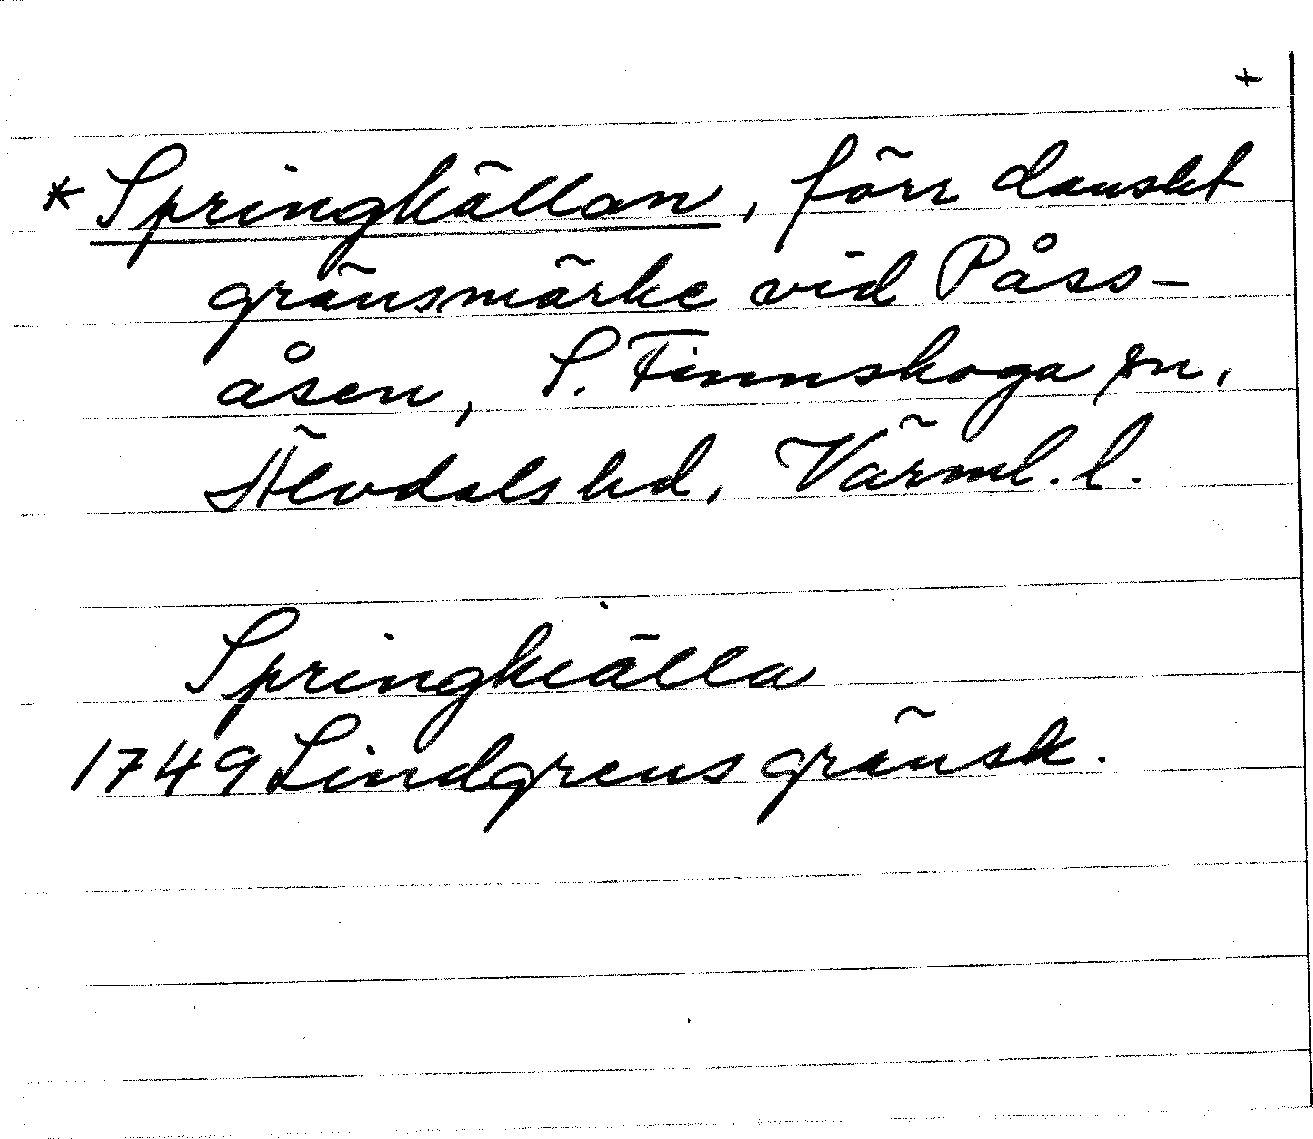 +
* Springkällan, förr danskt
gränsmärke vid Påss-
åsen, S. Finnskoga sn,
Älvdals hd, Värml. l.
Springkiälla
1749 Lindgrens gränsk.